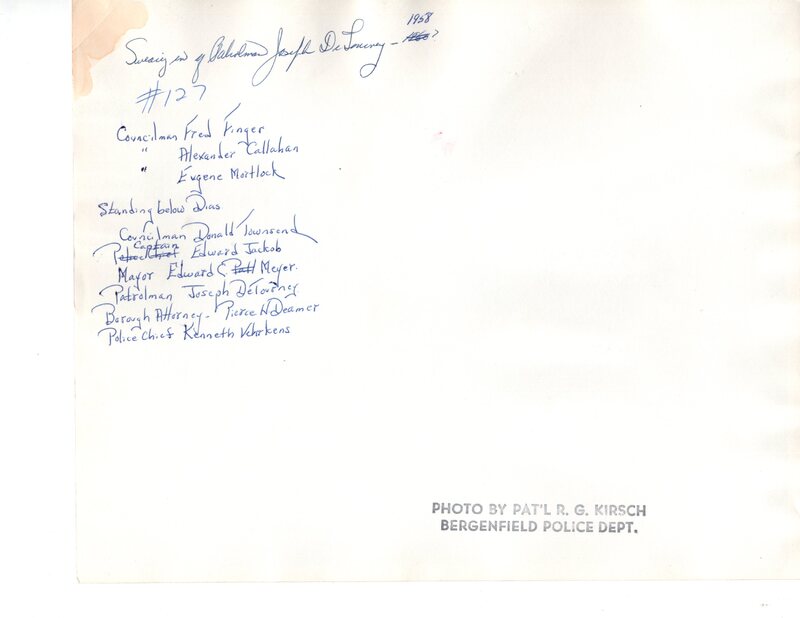 Swearing in of Patrolman Joseph DeTourney - 1958
1960?
#127
Councilman Fred Finger
" Alexander Callahan
" Eugene Mortlock
Standing below Dias
Councilman Donald Townsend
Captain
Edward Jackob
Mayor Edward Meyer.
Patrolman Joseph DeTourney
Borough Attorney - Pierce W Deamer
Police Chief Kenneth Vehrkens
PHOTO BY PAT'L R. G. KIRSCH
BERGENFIELD POLICE DEPT.